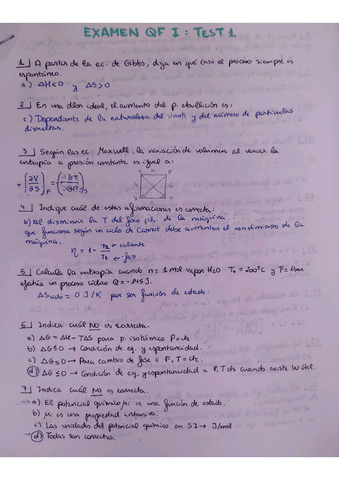 EXAMEN QF I: TEST 1
1 | A partir de la ec. de Gibbs, diga en qué caso el proceso siempre es
espontáneo.
a) ΔH<0 y ΔS>0
2 | En una disln ideal, el aumento del p. ebullición es:
c) Dependiente de la naturaleza del y del número de partículas
disueltas.
3 | Según las ec. Maxwell, la variación de volumen al variar la
entropía a presión constante es igual a:
+ (∂V/∂S)P = (∂T/∂P)S
4 | Indique cuál de estas afirmaciones es correcta:
b) El disminuir la T del foco de la máquina
que funciona según un ciclo de Carnot debe aumentar el rendimiento de la
máquina.
5 | Calcula la entropía cuando n = 1 mol vapor H2O T0 = 200°C y P = 1bar
efectúa un proceso cíclico Q = -145J.
= 0 J/K por ser función de estado.
6 | Indica cuál NO es correcta.
a) ΔG = ΔH - TΔS para p. isotérmico P=cte
b) ΔG≤0 → Condición de eq. y espontaneidad.
c) ΔG≤0 → Para cambio de fase a P, T = cte.
d) ΔG ≤ 0 → Condición de eq. y espontaneidad a P, T cte cuando existe W útil.
7 | Indica cuál NO es correcta.
a) El potencial químico μi es una función de estado.
b) μ es una propiedad intensiva.
c) Las unidades del potencial químico en SI → J/mol
d) Todas son correctas.